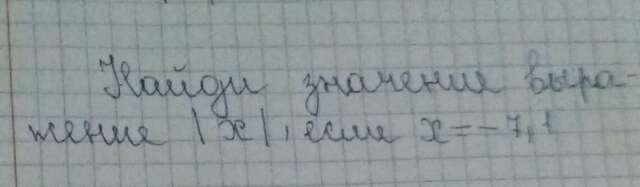 Найди значение выра-
жение |x|, если x = - 7,1